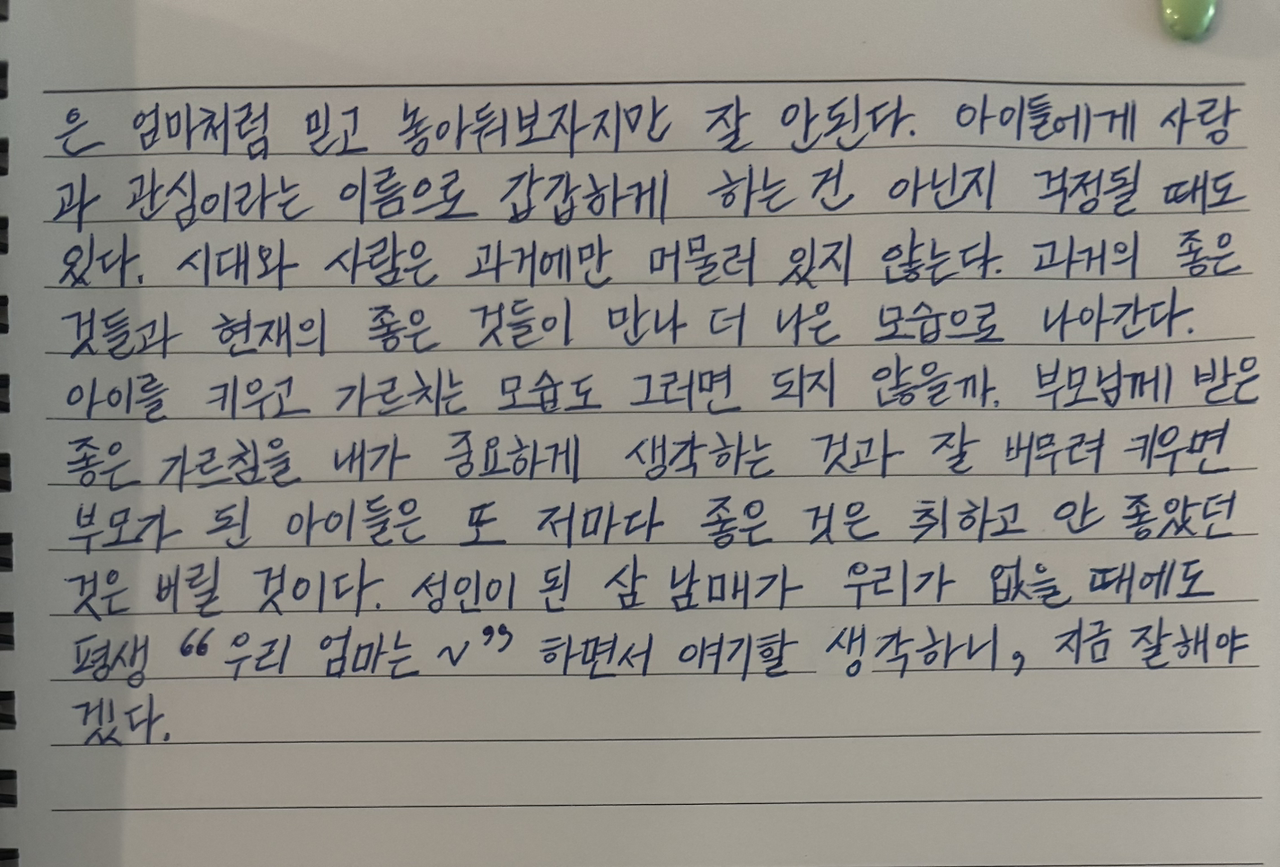 은 엄마처럼 믿고 놓아둬보자지만 잘 안된다. 아이들에게 사랑
과 관심이라는 이름으로 갑갑하게 하는 건 아닌지 걱정될 때도
있다. 시대와 사람은 과거에만 머물러 있지 않는다. 과거의 좋은
것들과 현재의 좋은 것들이 만나 더 나은 모습으로 나아간다.
아이를 키우고 가르치는 모습도 그러면 되지 않을까. 부모님께 받은
좋은 가르침을 내가 중요하게 생각하는 것과 잘 버무려 키우면
부모가 된 아이들은 또 저마다 좋은 것은 취하고 안 좋았던
것은 버릴 것이다. 성인이 된 삼 남매가 우리가 없을 때에도
평생 “우리 엄마는 ~” 하면서 얘기할 생각하니, 지금 잘해야
겠다.